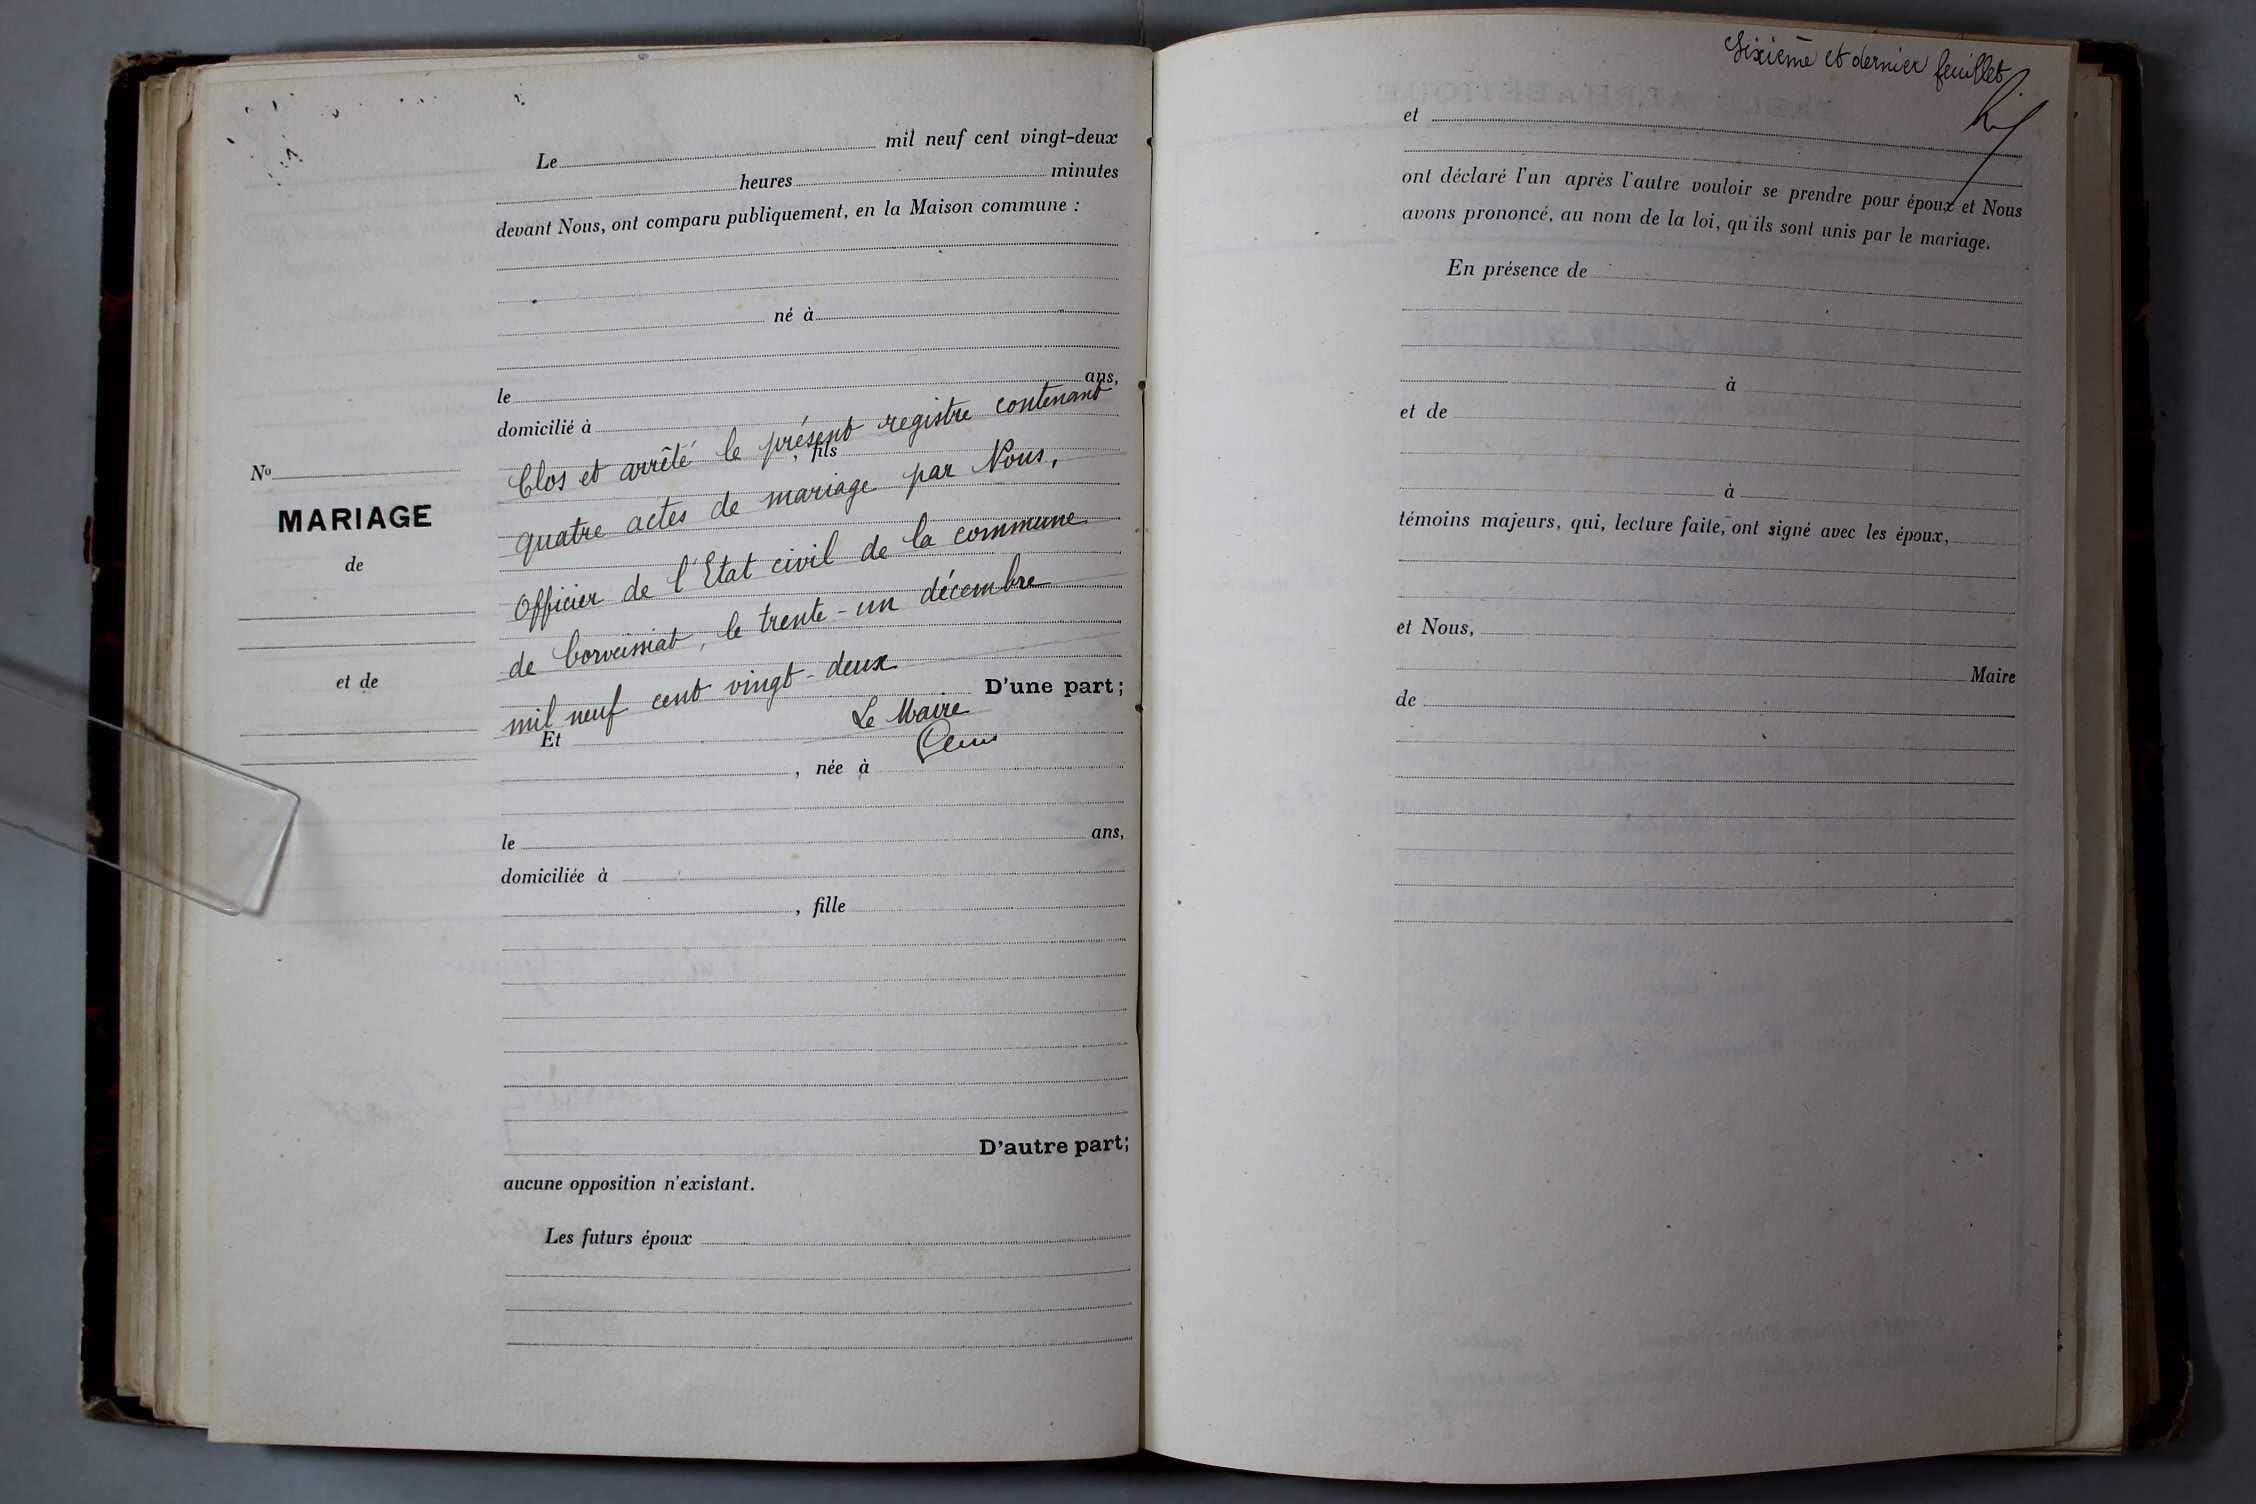 Le mil neuf cent vingt-deux
heures minutes
devant Nous, ont comparu publiquement, en la Maison commune :
né à
le ans,
domicilié à
Clos et arrêté le présent registre contenant
, fils
quatre actes de mariage par Nous,
Officier de l'Etat civil de la commune
de Corveissiat, le trente-un décembre
mil neuf cent vingt-deux
D'une part;
Le Maire
Et
, née à
le ans,
domiciliée à
, fille
D'autre part;
aucune opposition n'existant.
Les futurs époux
No
MARIAGE
de
et de
Sixième et dernier feuillet
et
ont déclaré l'un après l'autre vouloir se prendre pour époux et Nous
avons prononcé, au nom de la loi, qu'ils sont unis par le mariage.
En présence de
à
et de
à
témoins majeurs, qui, lecture faite, ont signé avec les époux,
et Nous,
Maire
de